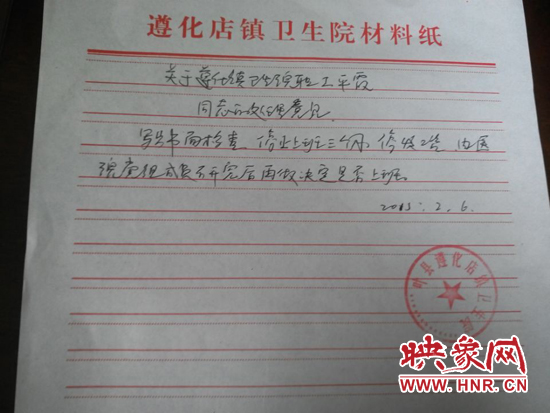 遵化店镇卫生院材料纸
关于遵化镇卫生院职工平霞
同志的处理意见
写出书面检查，停止上班三个月，停发工资，由医
院党组成员开完后再做决定是否上班。
2013.2.6.
叶县遵化店镇卫生院
映象网
WWW.HNR.CN